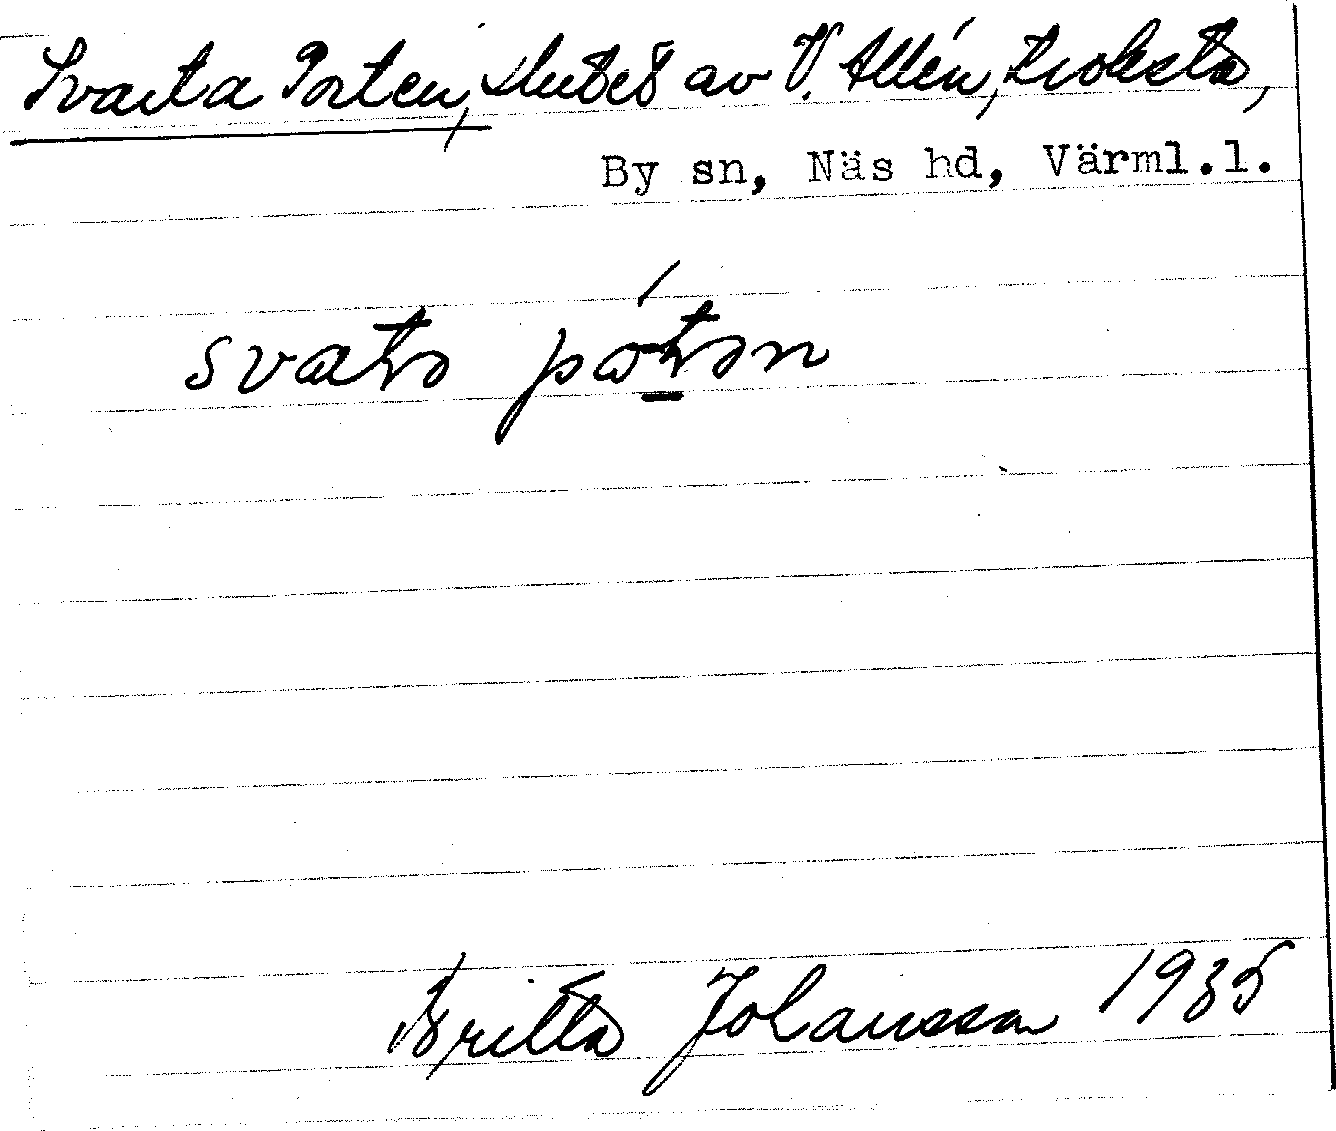 Svarta Porten, slutet av V. Allén, Krokstad,
By sn, Näs hd, Värml.l.
svato påtən
Britta Johansson 1935